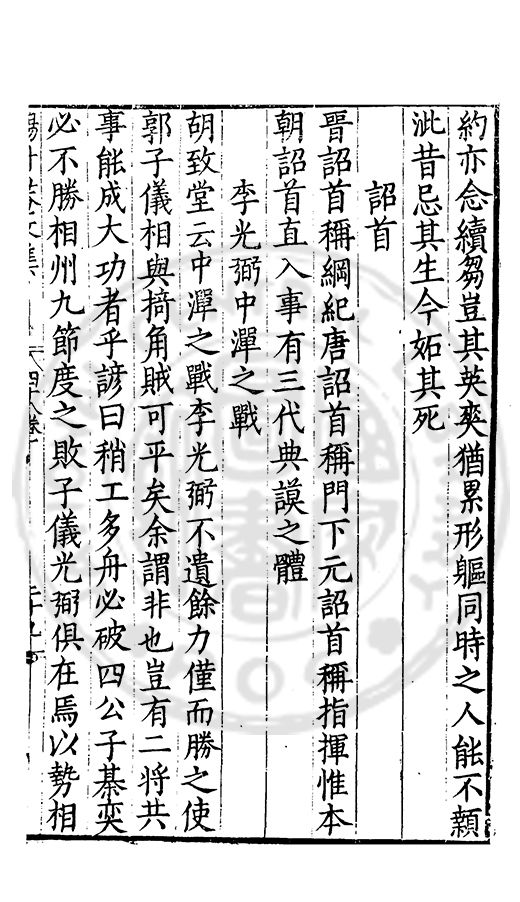 約亦念續芻豈其英爽猶累形軀同時之人能不顙
泚昔忌其生今妬其死
詔首
晉詔首稱綱紀唐詔首稱門下元詔首稱指揮惟本
朝詔首直入事有三代典謨之體
李光弼中潬之戰
胡致堂云中潬之戰李光弼不遺餘力僅而勝之使
郭子儀相與掎角賊可平矣余謂非也豈有二將共
事能成大功者乎諺曰稍工多舟必破四公子棊奕
必不勝相州九節度之敗子儀光弼俱在焉以勢相
四十八卷